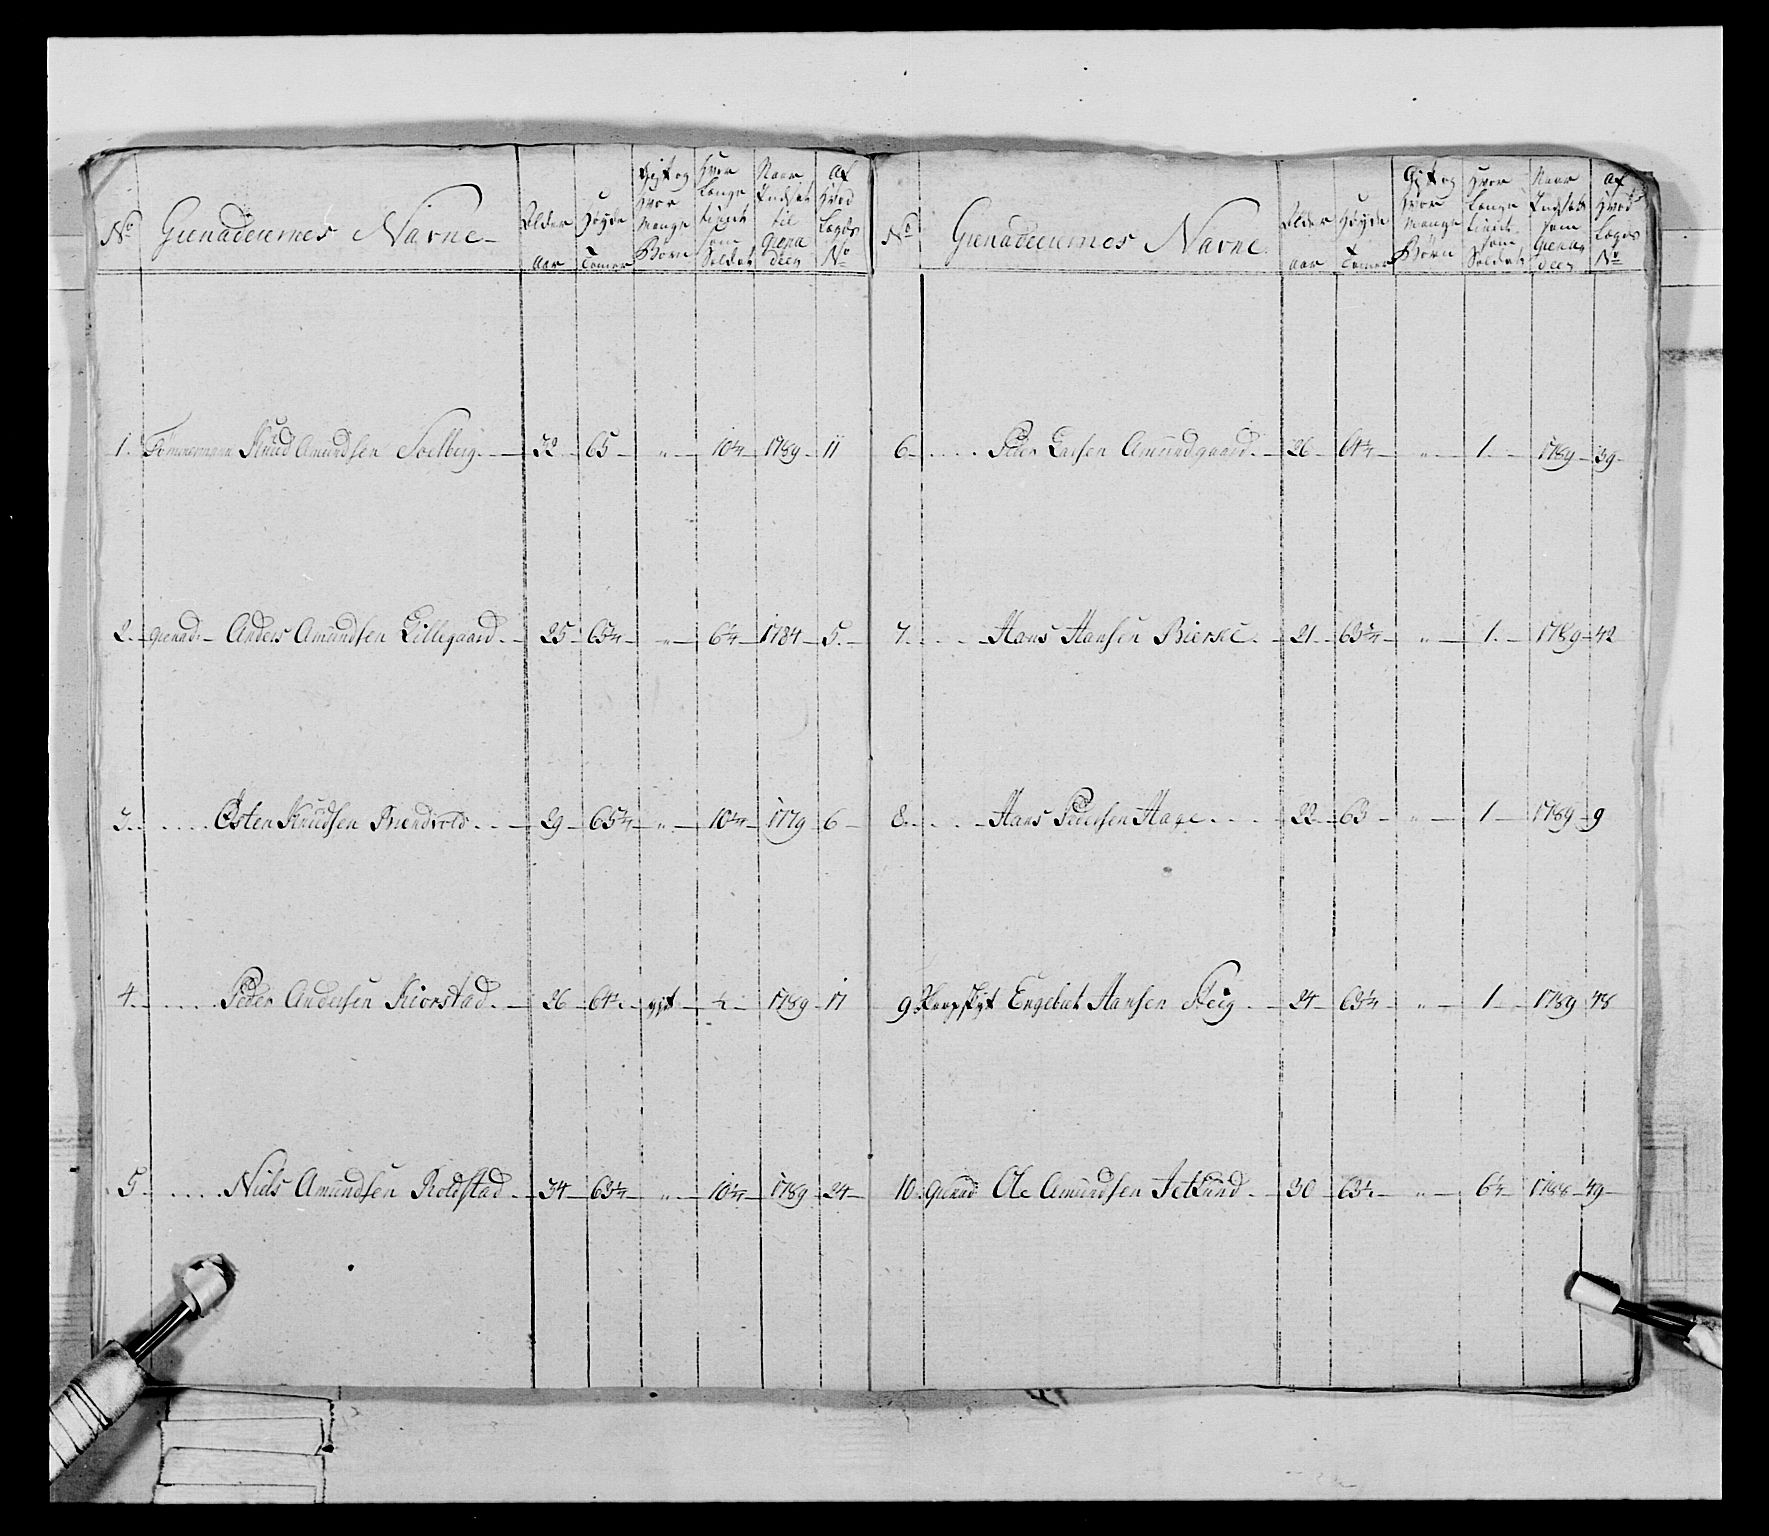 No Grenadeernes Navne
Alder Aar
Høyde Tomer
Gift og hvor mange Børn
Hvor Længe tient som Soldat
Naar Indsat til Grenadeer
Af hvad Lægds No
1. Tømmermann Knud Amundsen Solberg 32 65 " 10¼ 1789 11
2. Grenad: Anders Amundsen Lillegaard 25 65¼ " 6¼ 1784 5
3. Østen Knudsen 29 " 10¼ 1779 6
4. Peder Andersen Kiorstad 26 gift 1789 17
5. Niels Amundsen Rolstad 34 " 10¼ 1789 24
No Grenadeernes Navne
Alder Aar
Høyde Tomer
Gift og hvor mange Børn
Hvor Længe tient som Soldat
Naar Indsat som Grenadeer
Af hvad Lægds No
6. Peder Larsen Amundgaard 26 " 1 1789 39
7. Hans Hansen Bierke 21 " 1 1789 42
8. Hans Pedersen Hage 22 63 " 1 1789 9
9 Engebret Hansen Steig 24 " 1 1789 48
10 Grenad Ole Amundsen Jetlund 30 " 6¼ 1788 49